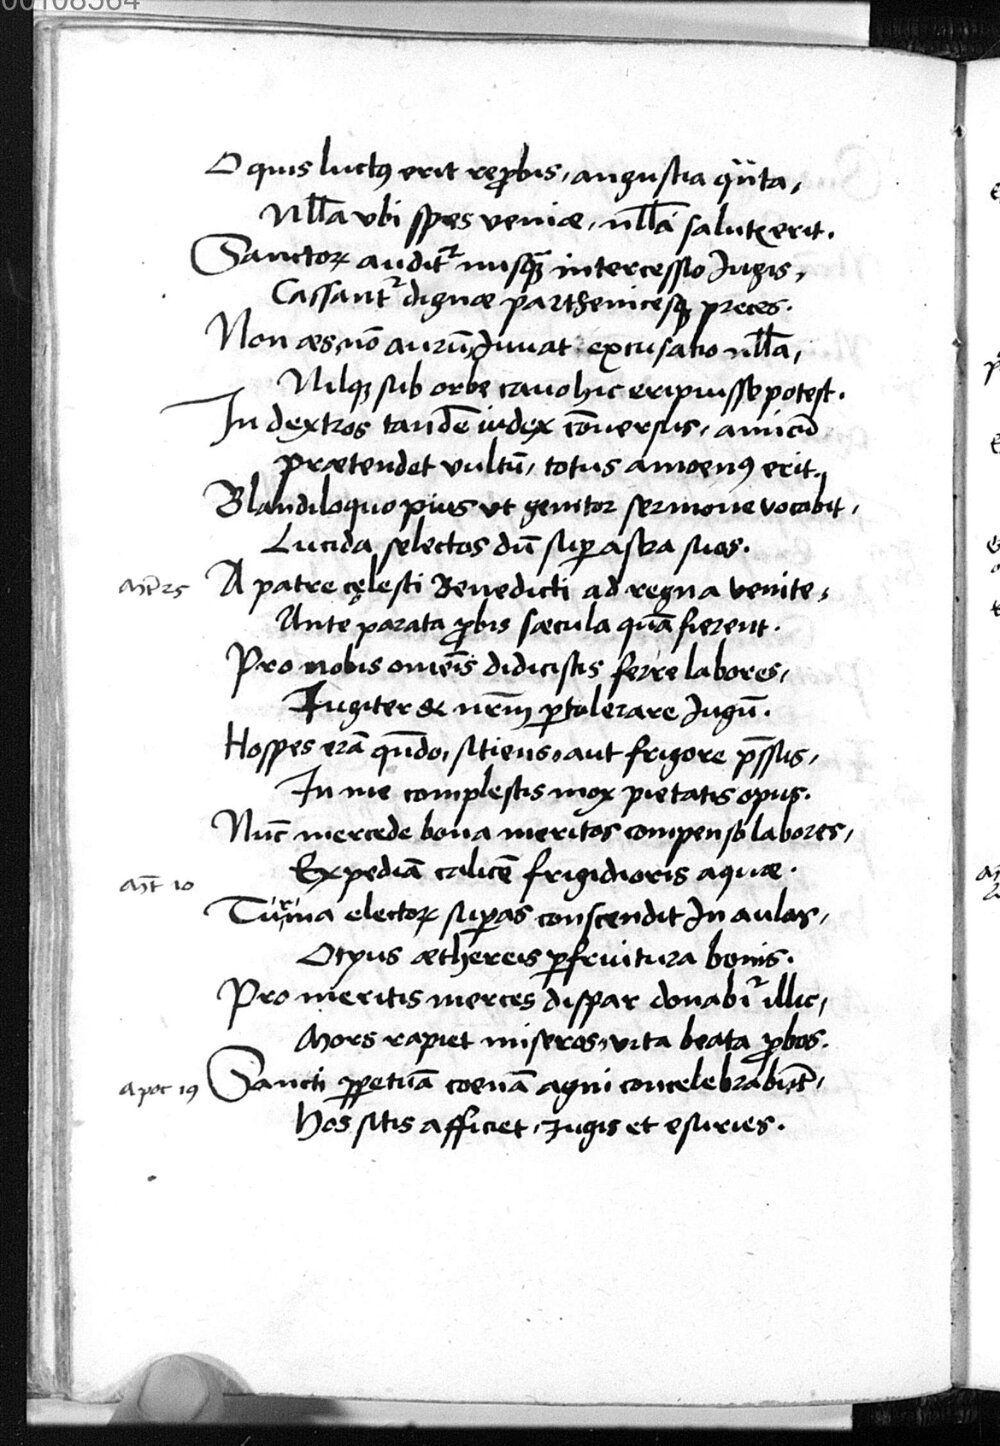 00108564
O quis luctꝰ erit rep̱bis, angustia qᷓnta,
Nll̅a vbi spes veniæ, nll̅a salutꝭ erit.
Sanctoꝝ auditᷣ nusqꝫ̃ intercessio Jugis,
Cassantᷣ dignæ parthenicesqꝫ preces.
Non æs, nō aurū, Juuat excusatio nll̅a,
Nilqꝫ sub orbe cauo hic eripuisse potest.
In dextros tandē iudex cōuersus, amicū
Prætendet vultū, totus amoenꝰ erit.
Blandiloquo pius vt genitor sermone vocabit,
Lucida selectos dū suꝑ astra suos.
Mᵗ 25 A patre cęlesti Benedicti ad regna venite,
Ante parata ꝓbis sæcula quā fierent.
Pro nobis omēis didicistis ferre labores,
Jugiter & nr̅m ꝑtolerare Jugū.
Hospes erā qn̄do, sitiens, aut frigore p̄ssus,
In me complestis mox pietatis opus.
Nūc mercede bona meritos compenso labores,
Mᵗ 10 Expediā calicē frigidioris aquæ.
Turma electoꝝ suꝑas conscendit In aulas,
Ocyus æthereis ꝑfruitura bonis.
Pro meritis merces dispar donabiᷣ illic,
Mors rapiet miseros, vita beata ꝓbos.
Apoc 19 Sancti ꝑpetuā coenā agni concelebrabūt,
Hos sitis afficiet, Jugis et esuries.